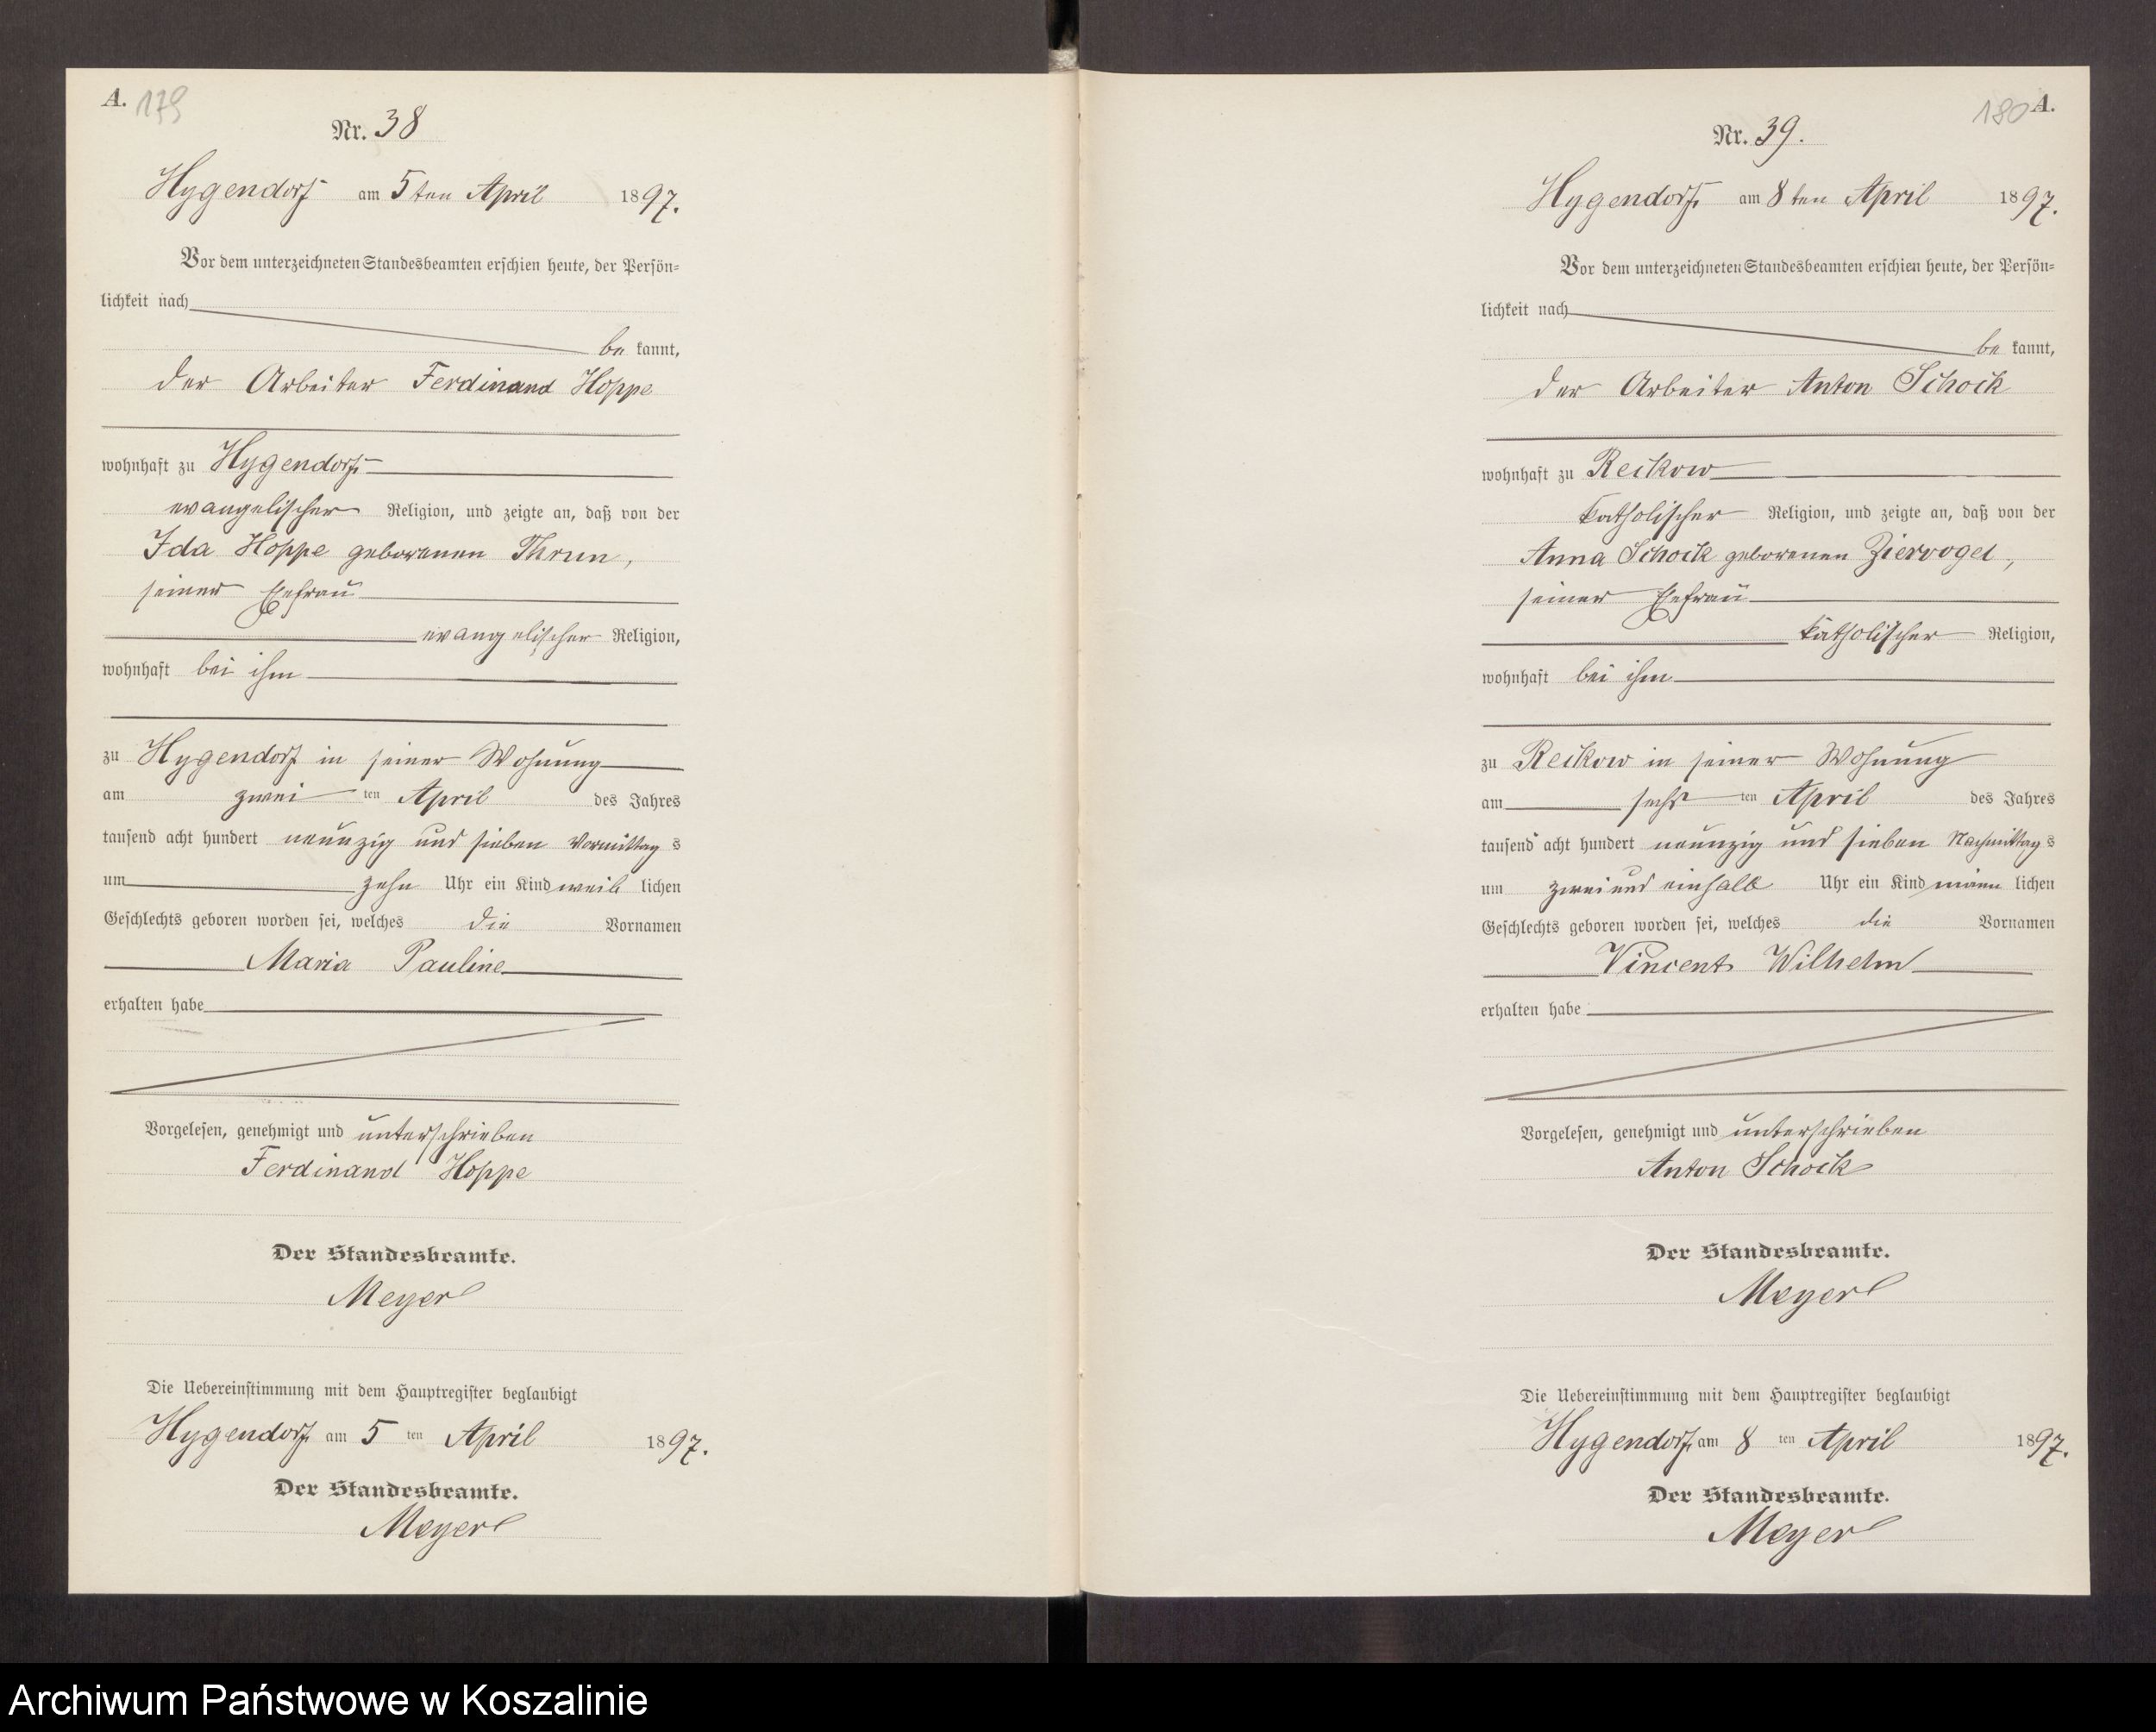 A. 179
Nr. 38
Hygendorf am 5ten April 1897.
Vor dem unterzeichneten Standesbeamten erschien heute, der Persön-
lichkeit nach
be kannt,
der Arbeiter Ferdinand Hoppe
wohnhaft zu Hygendorf
evangelischer Religion, und zeigte an, daß von der
Ida Hoppe geborenen Thrun,
seiner Ehefrau
evangelischer Religion,
wohnhaft bei ihm
zu Hygendorf in seiner Wohnung
am zwei ten April des Jahres
tausend acht hundert neunzig und sieben Vormittag s
um zehn Uhr ein Kind weib lichen
Geschlechts geboren worden sei, welches die Vornamen
Maria Pauline
erhalten habe
Vorgelesen, genehmigt und unterschrieben
Ferdinand Hoppe
Der Standesbeamte.
Meyer
Die Uebereinstimmung mit dem Hauptregister beglaubigt
Hygendorf am 5 ten April 1897.
Der Standesbeamte.
Meyer
180 A.
Nr. 39.
Hygendorf am 8ten April 1897.
Vor dem unterzeichneten Standesbeamten erschien heute, der Persön-
lichkeit nach
be kannt,
der Arbeiter Anton Schock
wohnhaft zu Reckow
katholischer Religion, und zeigte an, daß von der
Anna Schock geborenen Ziervogel,
seiner Ehefrau
katholischer Religion,
wohnhaft bei ihm
zu Reckow in seiner Wohnung
am sechs ten April des Jahres
tausend acht hundert neunzig und sieben Nachmittag s
um zwei und einhalb Uhr ein Kind männ lichen
Geschlechts geboren worden sei, welches die Vornamen
Vincent Wilhelm
erhalten habe
Vorgelesen, genehmigt und unterschrieben
Anton Schock
Der Standesbeamte.
Meyer
Die Uebereinstimmung mit dem Hauptregister beglaubigt
Hygendorf am 8 ten April 1897.
Der Standesbeamte.
Meyer
Archiwum Państwowe w Koszalinie